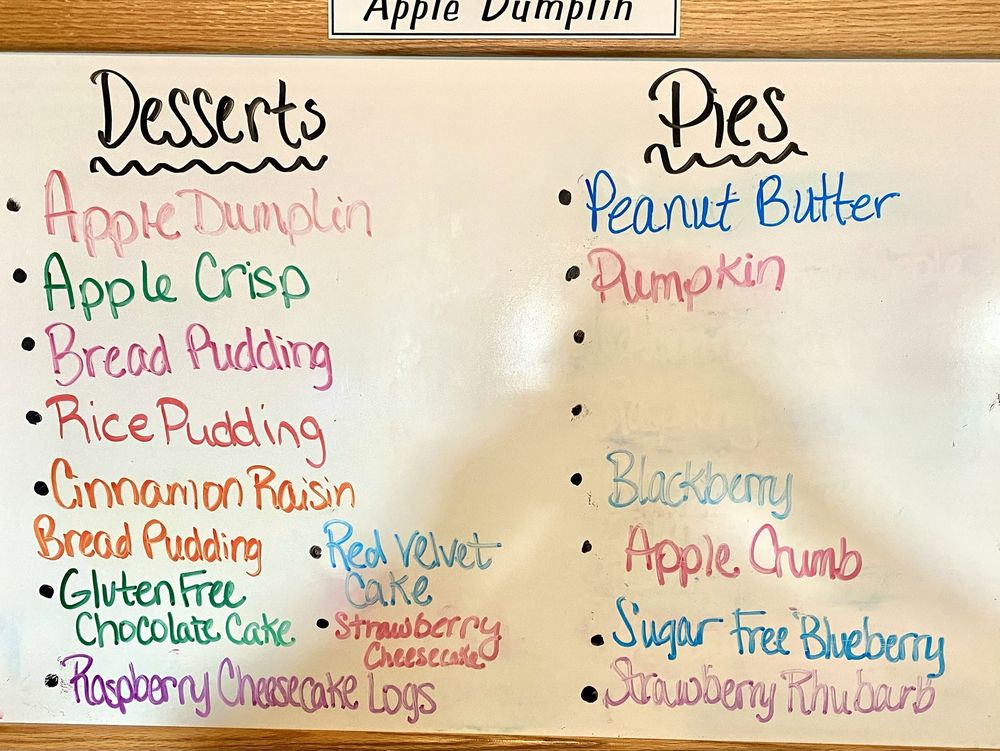 Apple Dumplin
Desserts
• Apple Dumplin
• Apple Crisp
• Bread Pudding
• Rice Pudding
• Cinnamon Raisin
Bread Pudding
• Gluten Free
Chocolate Cake
• Raspberry Cheesecake Logs
• Red Velvet
Cake
• Strawberry
Cheesecake
Pies
• Peanut Butter
• Pumpkin
•
•
• Blackberry
• Apple Crumb
• Sugar Free Blueberry
• Strawberry Rhubarb